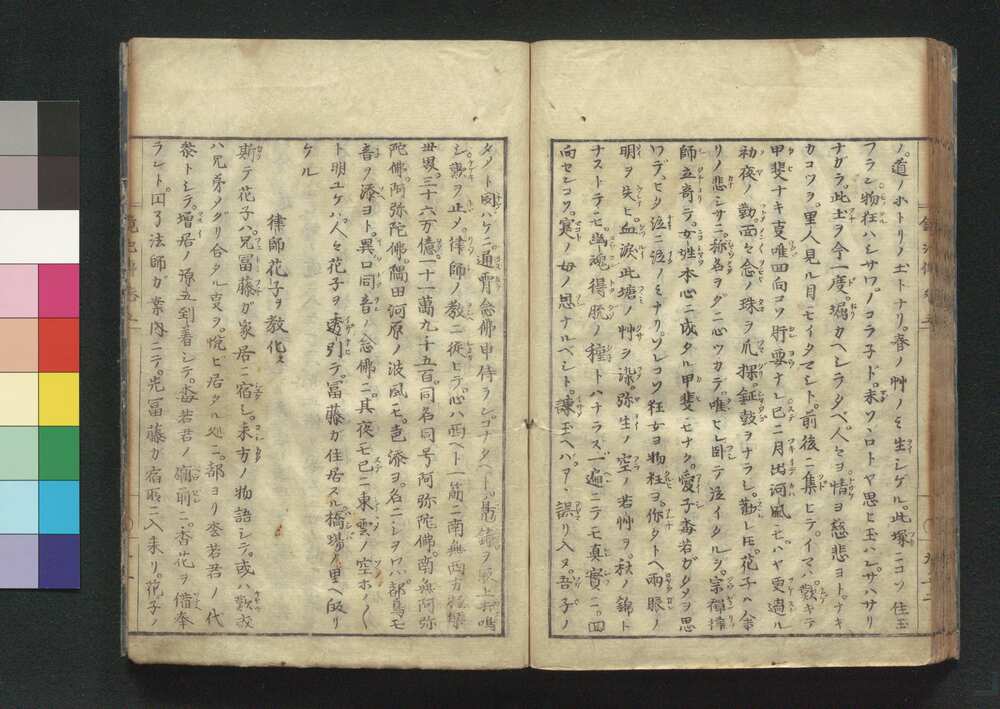 ノ。道ノホトリノ土トナリ。春ノ艸ノミ生シゲル。此塚ニコソ住玉
フラン。物狂ハシサワノコラ子ド。未ツ、ロトヤ思ヒ玉ハシ。サハサリ
ナガラ。此土ヲ今一度。堀カヘシラタベ。人々ヨ情ヨ慈悲ヨト。ナキ
カコツヲ。里人見ル目モイタマシト。前後ニ集ヒテ。イマハ歎キテ
甲斐ナキ支唯回向コソ肝要ナレ。已ニ月出河風モ。ハヤ更過ル
初夜ノ勤。面々念ノ珠ヲ爪探。鉦鼓ヲナラシ。勧レ𪜈。花子ハ余
リノ悲シサニ。称名ヲダニ心ツカデ。唯ヒレ臥テ泣イタルシ。宗禅律
師立寄テ。女姓本心ニ成タル甲斐モナク。愛子毒若ガタメヲ思
ワデ。ヒタ泣ニ泣ノミナリ。ソレコソ狂女ヨ物狂ヨ。你タトヘ両眼ノ
明ヲ失ヒ。血涙此塘ノ艸ヲ染。弥生ノ空ノ若艸ヲ。秋ノ錦ト
ナストテモ。幽魂得脱ノ種トハナラス。一遍ニテモ真實ニ。回
向セシコソ。寔ノ母ノ思ナルベシト。諫玉ヘハ。アヽ誤リ入ヌ。吾子ノ
タメト聞ハゲニ。通霄念佛申侍ラン。コナタヘト
シ。歎ヲ止メ。律師ノ教ニ従ヒテ。心ハ西ヘト一筋ニ南無西方極樂
世界。三十六万億。一十一萬九千五百。同名同号阿弥陀佛。南無阿弥
陀佛。阿弥陀佛。隅田河原ノ波風モ。声添ヨ。名ニシヲハヾ都鳥モ
音ヲ添ヨト。異口同音ノ念佛ニ。其夜モ已ニ東雲ノ空ホノ〱
ト明ユケハ。人々花子ヲ透引テ。冨藤ガ住居スル橋場ノ里ヘ皈リ
ケル
律師花子ヲ教化ス
斯テ花子ハ。兄冨藤ガ家居ニ宿シ。来方ノ物語シテ。或ハ歎或
ハ兄弟ノメグリ合タル支ヲ。悦ヒ居タル処ニ。都ヨリ杢若君ノ代
参トシテ。増居ノ源五到着シテ。杢若君ノ廟前ニ。香花ヲ備奉
ラント。因了法師ガ案内ニテ。先冨藤ガ宿所ニ入来リ。花子ノ